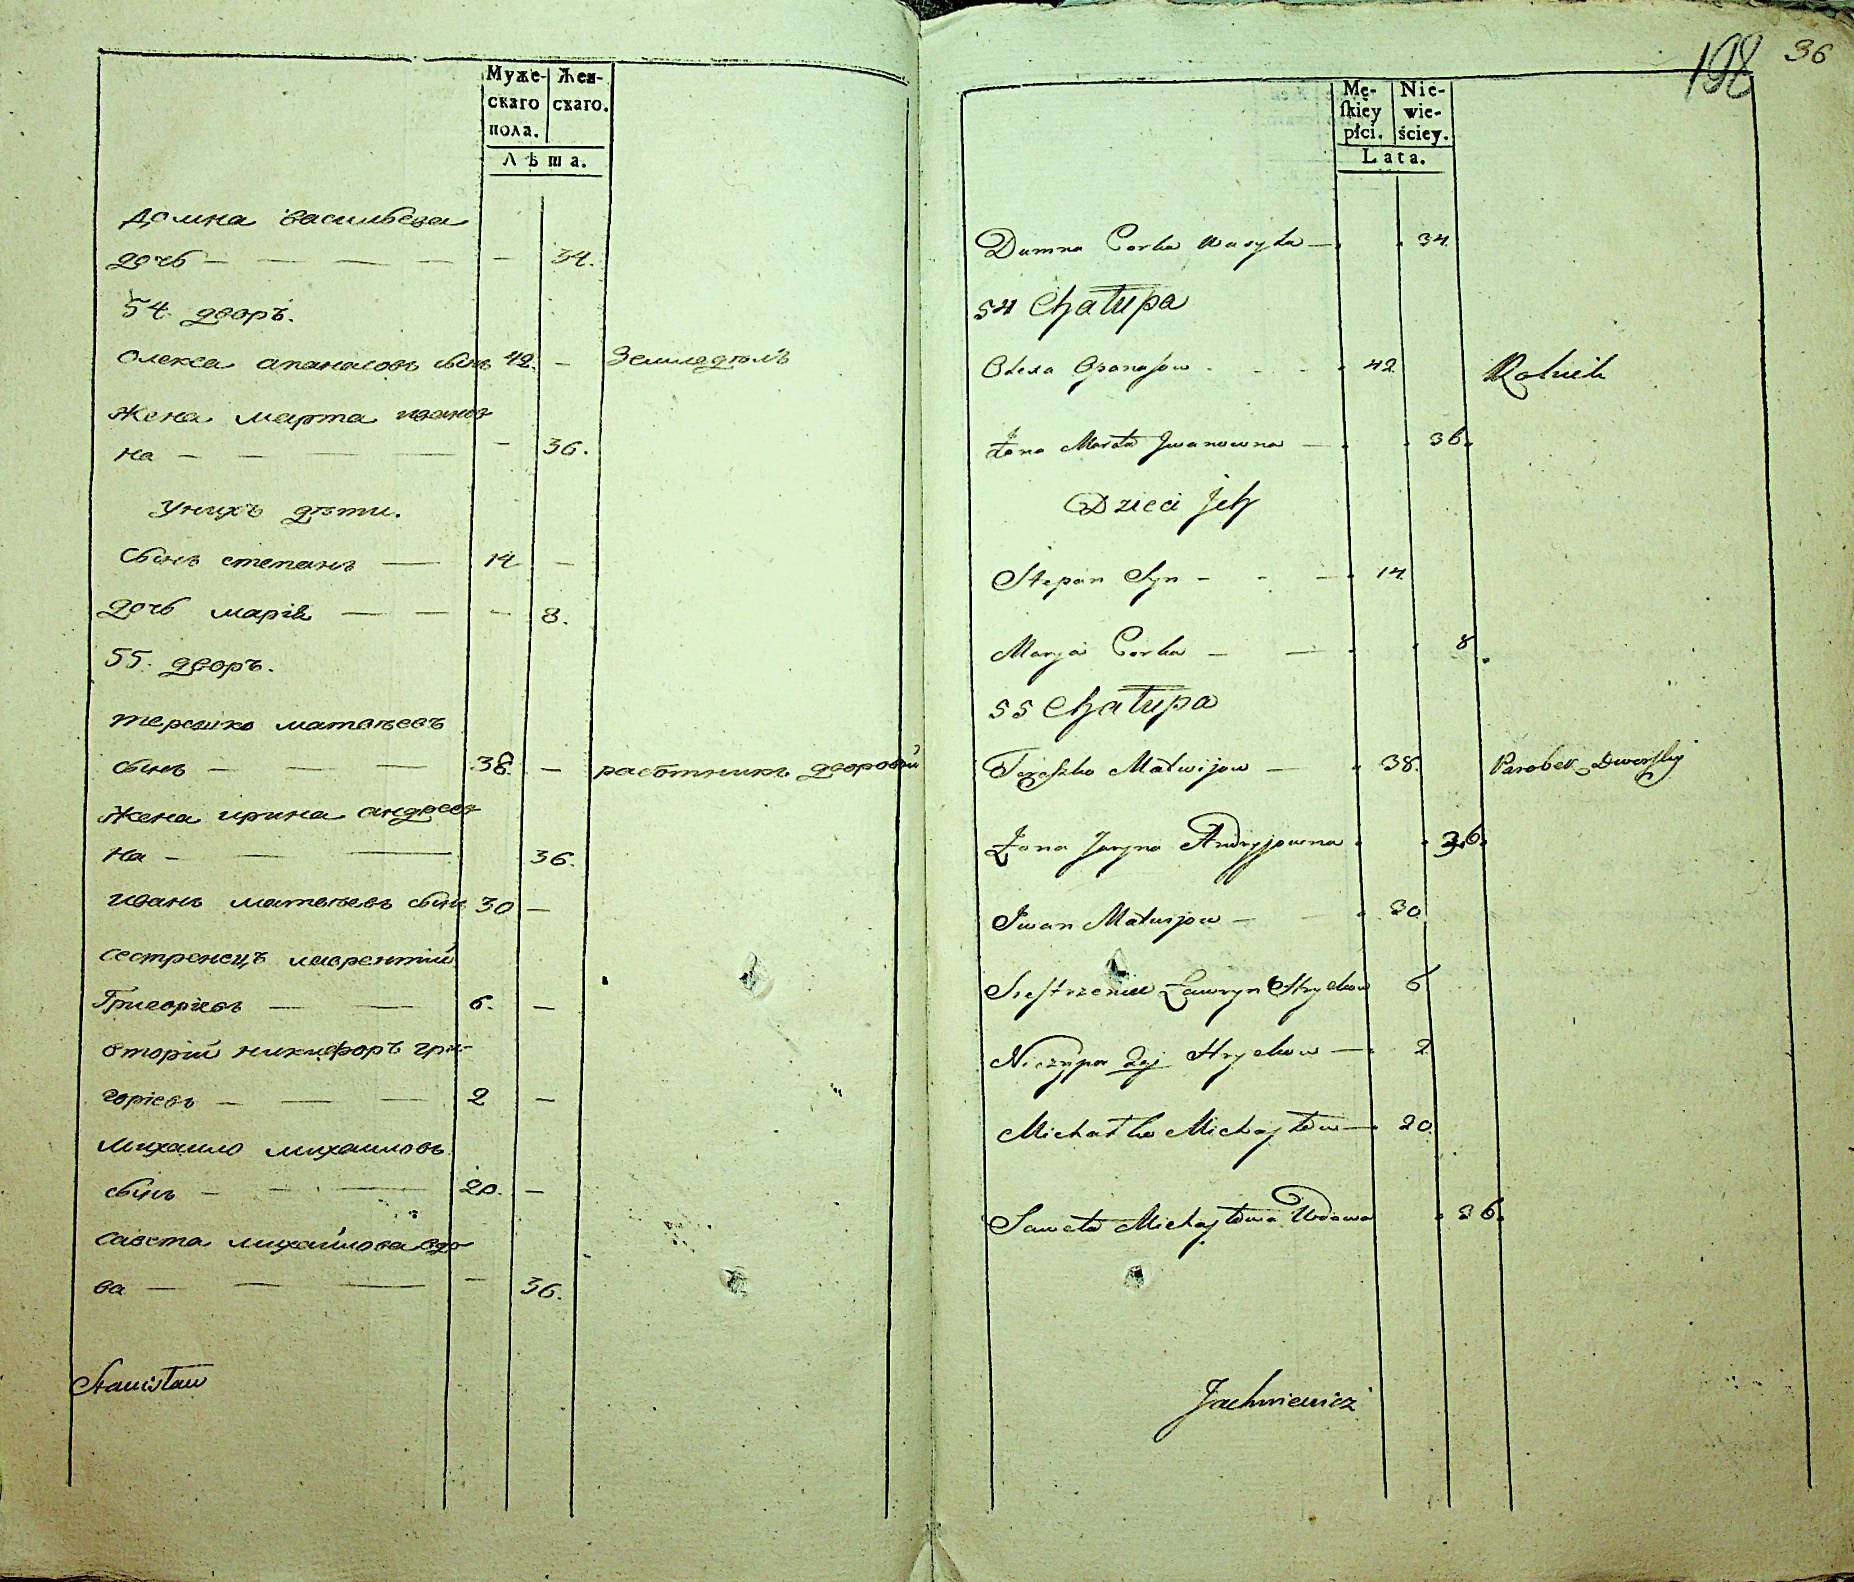 Муже-
скаго
пола.
Жен-
скаго.
Лѣта.
Домна васильева
дочь — — — — — 34.
54. дворъ.
Олекса апанасовъ сынъ 42. — Земледѣлъ
Жена марта иванов
на — — — — — 36.
Унихъ дѣти.
Сынъ степанъ — 14 —
Дочь марія — — — 8.
55. дворъ.
терешко матвѣевъ
сынъ — — — 38. — работникъ дворовый
Жена ирина андреев
на — — — 36.
иванъ матвѣевъ сынъ 30 —
сестренецъ лаврентій
Григоріевъ — — 6. —
вторій никифоръ гри-
горіевъ — — — 2 —
михаило михаиловъ
сынъ — — — 20. —
Савета михайлова вдо
ва — — — — 36.
Stanisław
198 36
Mę-
skiey
płci.
Nie-
wie-
ściey.
Lata.
Dumna Corka Wasyla — 34.
54 Chałupa
Olexa Apanasow 42 Rolnik
Żona Marta Jwanowna — 36.
Dzieci Jch
Stepan Syn - - — 14
Marya Corka — — 8
55 Chałupa
Tereszko Matwijow — 38. Parobek Dworski
Żona Jaryna Andryjowna 36.
Jwan Matwijow — 30
Siestrzeniec Ławryn Hrycków 6
Niczypor 2gi Hrycków — 2
Michałko Michayłow — 20
Saweta Michayłowa Wdowa 36.
Jachniewicz